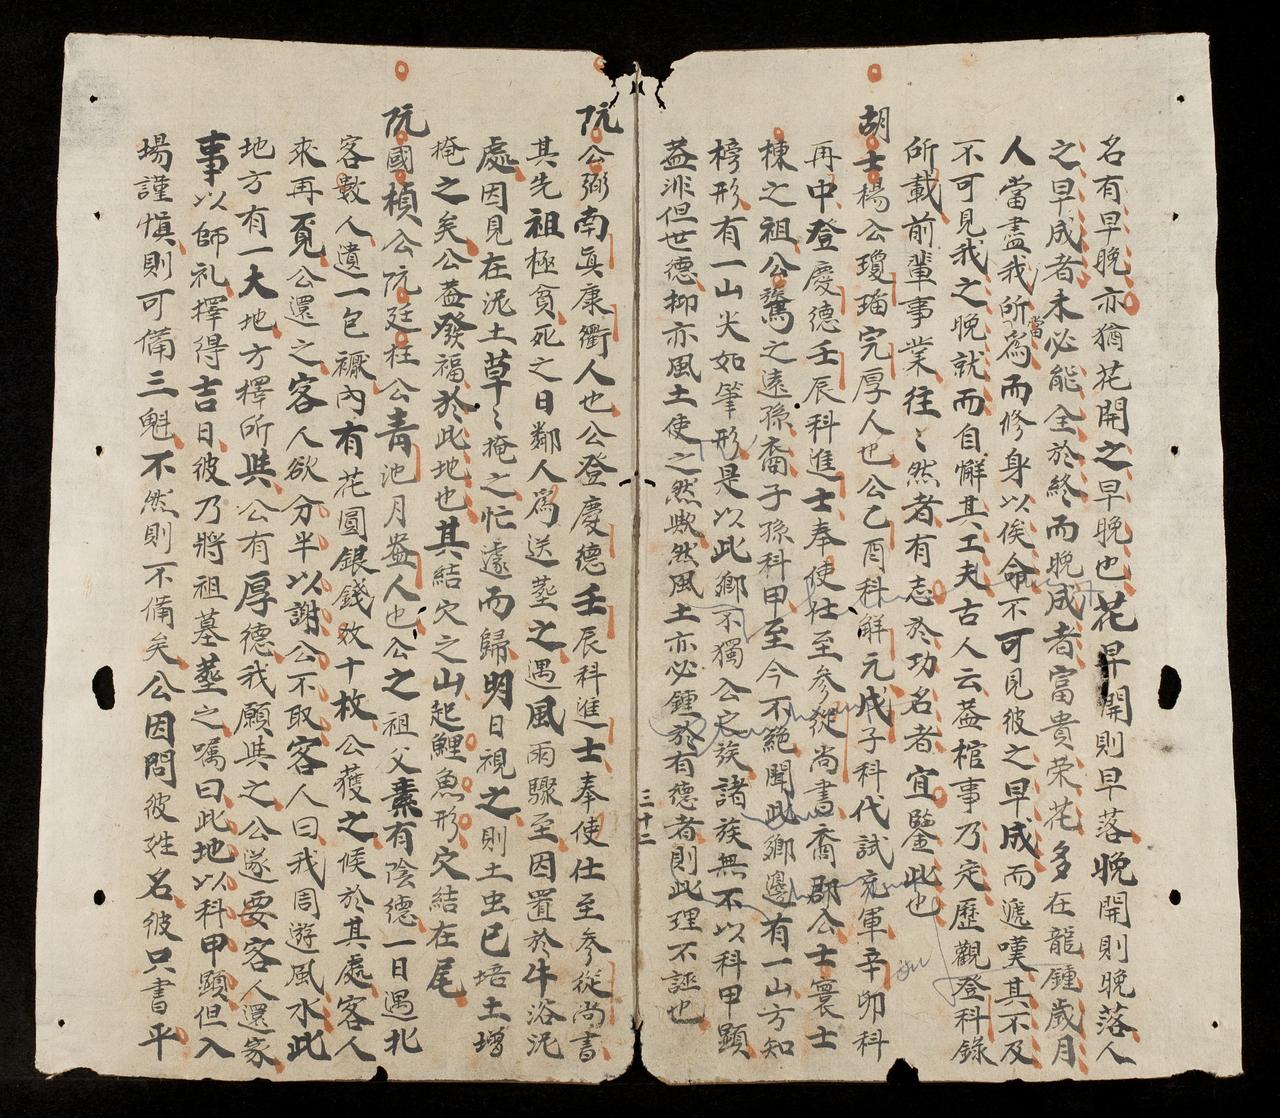 名有早晚亦猶花開之早晚也花早開則早落晚開則晚落人
之早成者未必能全於終而晚成者富貴荣花多在龍鍾歲月
人當盡我所當為而修身以俟命不可見彼之早成而遽嘆其不及
不可見我之晚就而自懈其工夫古人云盖棺事乃定歷觀登科錄
所載前輩事業往〻然者有志於功名者宜鑒此也
胡士楊公瓊瑠完厚人也公乙酉科解元戊子科代試充軍辛卯科
再中登慶德壬辰科進士奉使仕至參從尚書喬郡公士寰士
棟之祖公驚之遠孫裔子孫科甲至今不絕聞此鄉邊有一山方如
榜形有一山尖如筆形是以此鄉不獨公之族諸族無不以科甲顯
益非但世德抑亦風土使之然歟然風土亦必鍾於有德者則此理不誣也
三十二
阮公弼南真康衢人也公登慶德壬辰科進士奉使仕至參從尚書
其先祖極貧死之日鄰人為送塟之遇風雨驟至因置於牛浴泥
處因見在泥土草〻掩之忙遽而歸明日視之則土虫已培土增
掩之矣公益發福於此地也其結穴之山起鯉魚形穴結在尾
阮國楨公阮廷柱公青池月盎人也公之祖父素有陰德一日遇北
客數人遺一包襪內有花圓銀錢效十枚公獲之候於其處客人
來再覓公還之客人欲分半以謝公不取客人曰我周遊風水此
地方有一大地方擇所與公有厚德我願與之公遂要客人還家
事以師礼擇得吉日彼乃將祖墓塟之囑曰此地以科甲顯但入
場謹慎則可備三魁不然則不備矣公因問彼姓名彼只書平